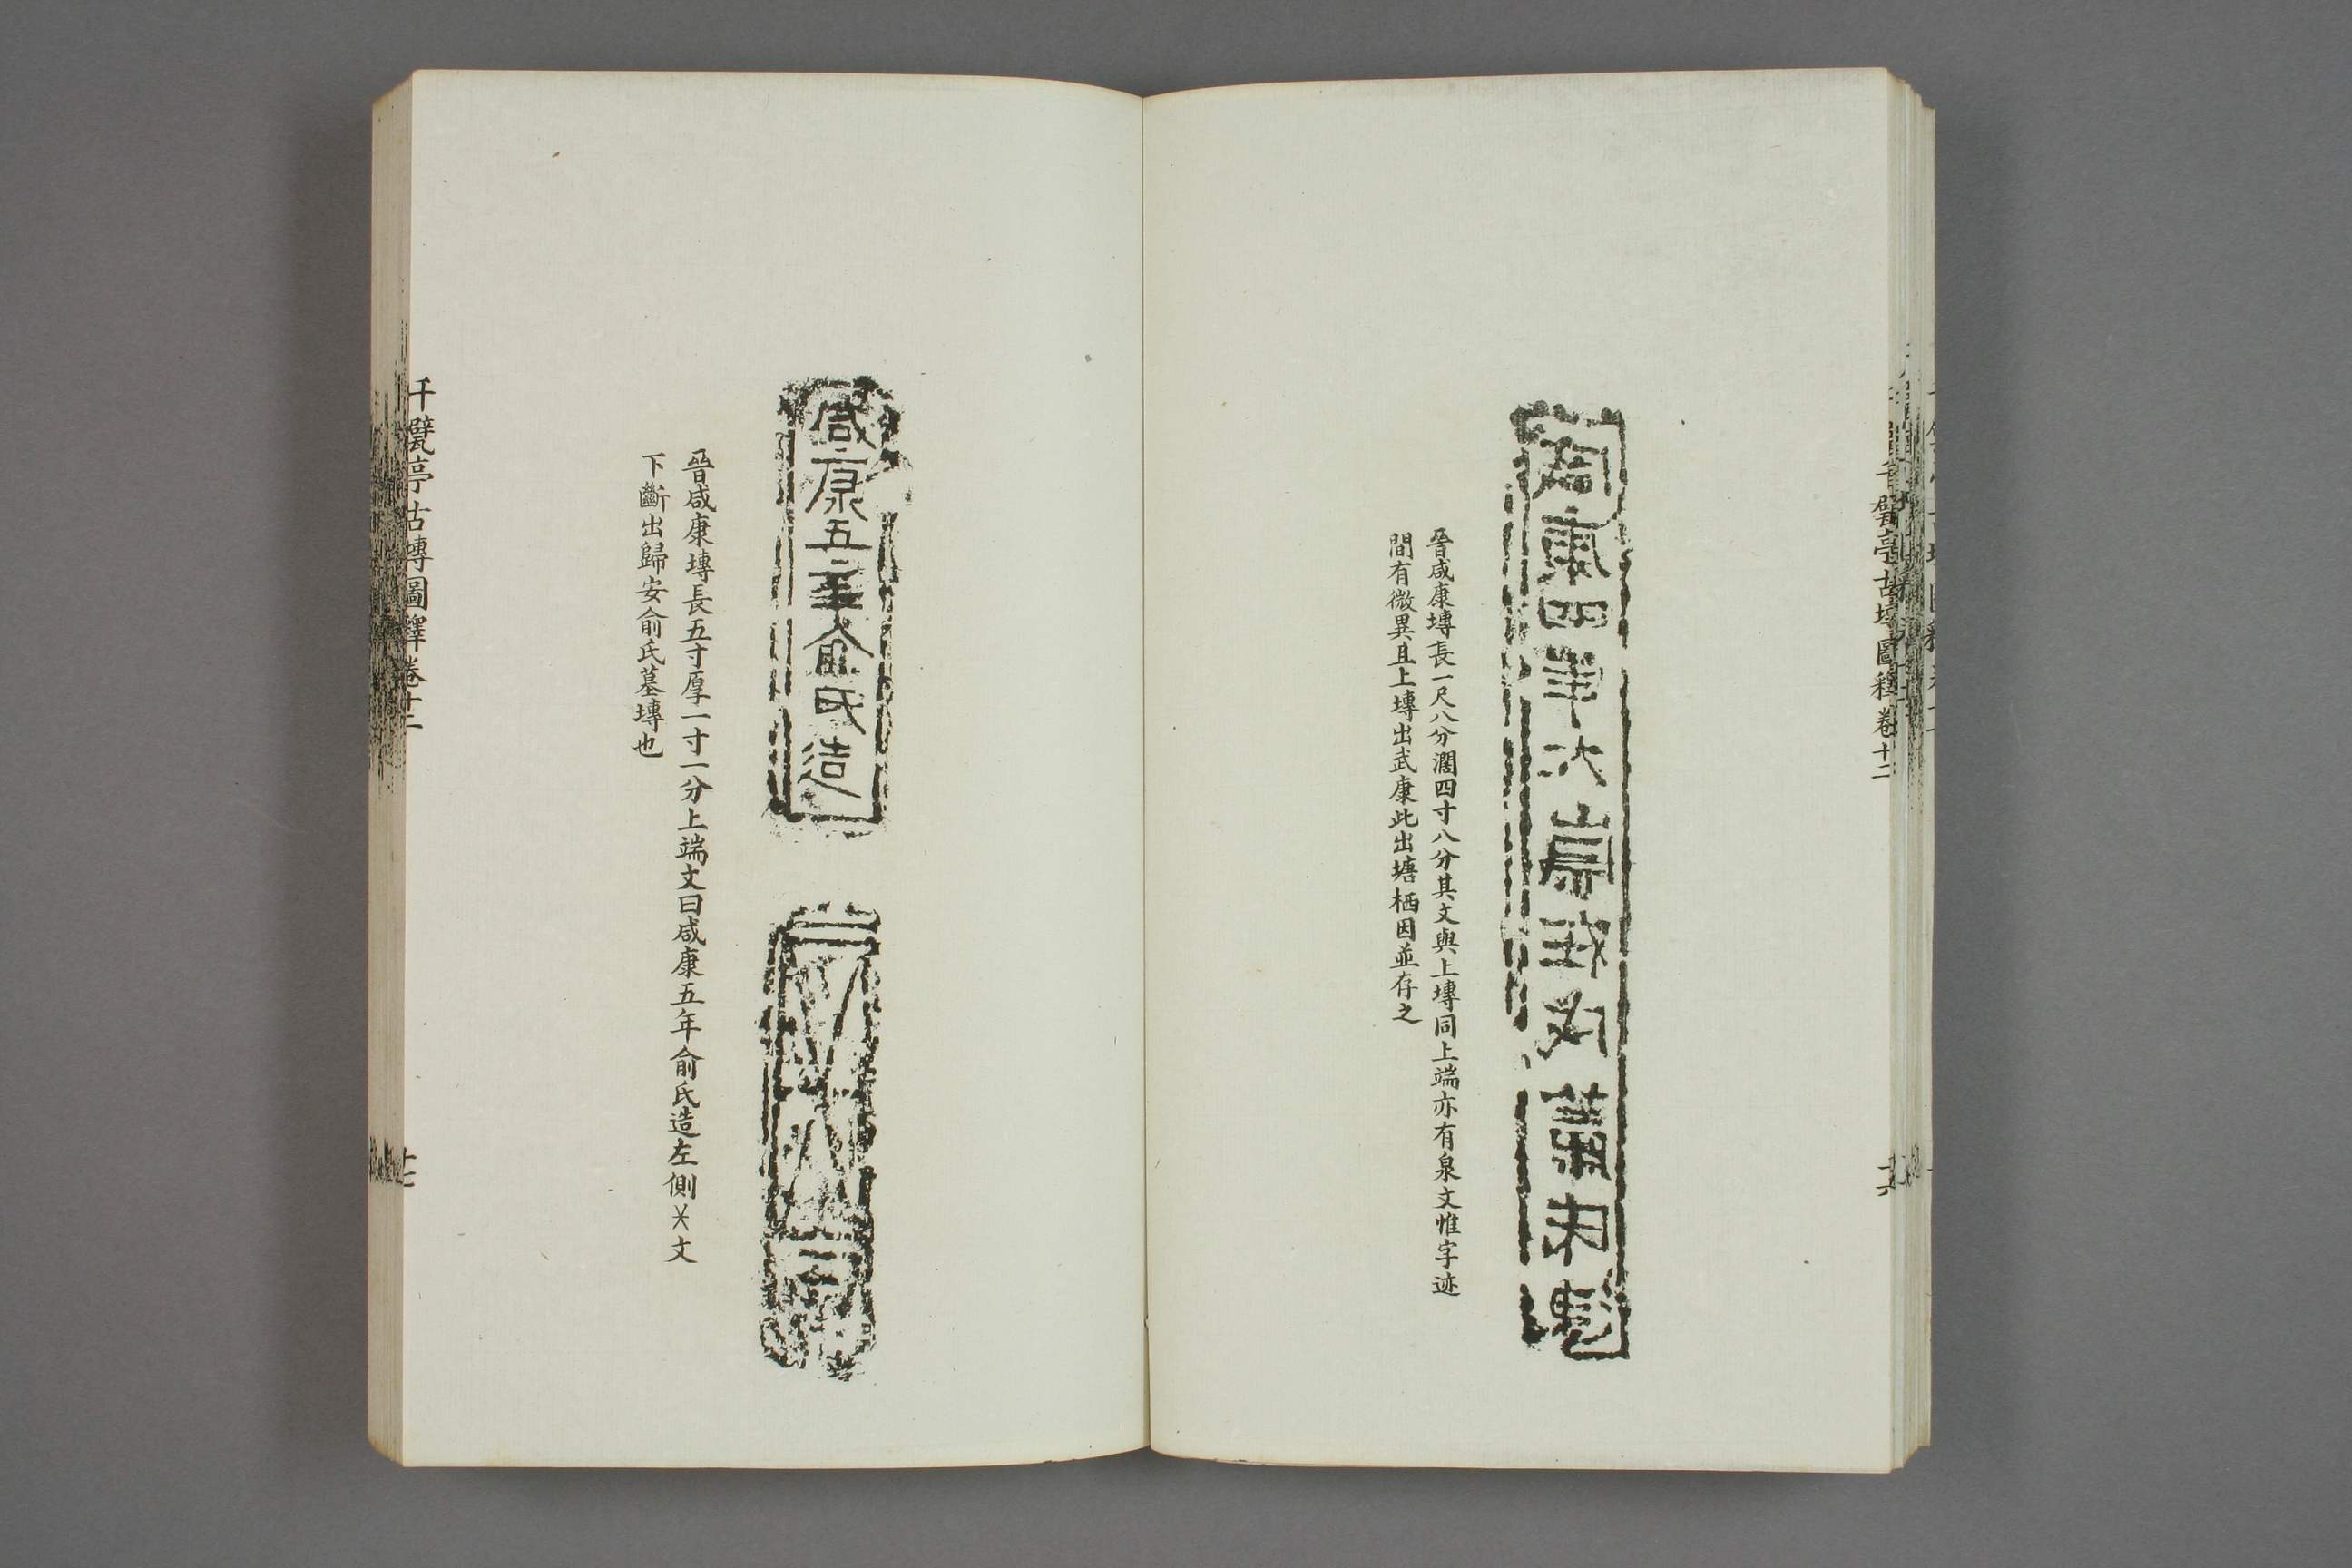 晉咸康塼長一尺八分濶四寸八分其文與上塼同上端亦有泉文惟字迹
間有微異且上塼出武康此出塘栖因並存之
千甓亭古塼圖釋卷十二
十六
咸康五年俞氏造
晉咸康塼長五寸厚一寸一分上端文曰咸康五年俞氏造左側乂文
下斷出歸安俞氏墓塼也
千甓亭古塼圖釋卷十二
十七